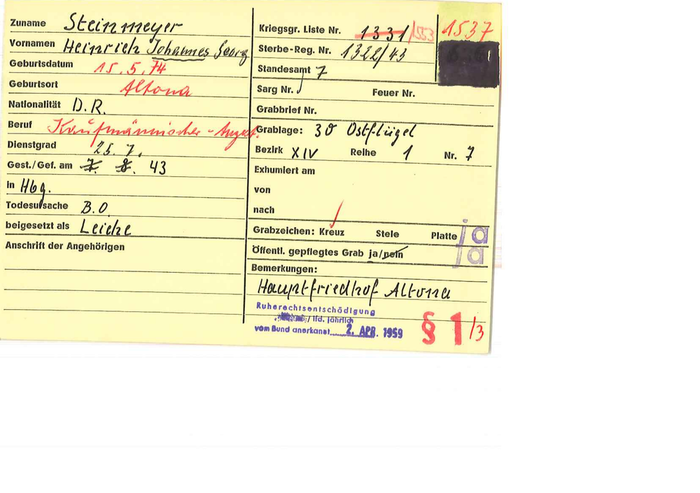 Zuname Steinmeyer
Vornamen Heinrich Johannes Georg
Geburtsdatum 15.5.74
Geburtsort Altona
Nationalität D.R.
Beruf Kaufmännischer-Angest.
Dienstgrad 25.7.
Gest./Gef. am 43
in Hbg.
Todesursache B.O.
beigesetzt als Leiche
Anschrift der Angehörigen
Kriegsgr. Liste Nr. 1331/553 1537
Sterbe-Reg. Nr. 1322/43
Standesamt 7
Sarg Nr. Feuer Nr.
Grabbrief Nr.
Grablage: 30 Ostflügel
Bezirk XIV Reihe 1 Nr. 7
Exhumiert am
von
nach
Grabzeichen: Kreuz Stele Platte ja
Öffentl. gepflegtes Grab ja/nein ja
Bemerkungen:
Hauptfriedhof Altona
Ruherechtsentschödigung
/ lfd. jährlich
vom Bund anerkannt 2. APR. 1959
§ 1/3